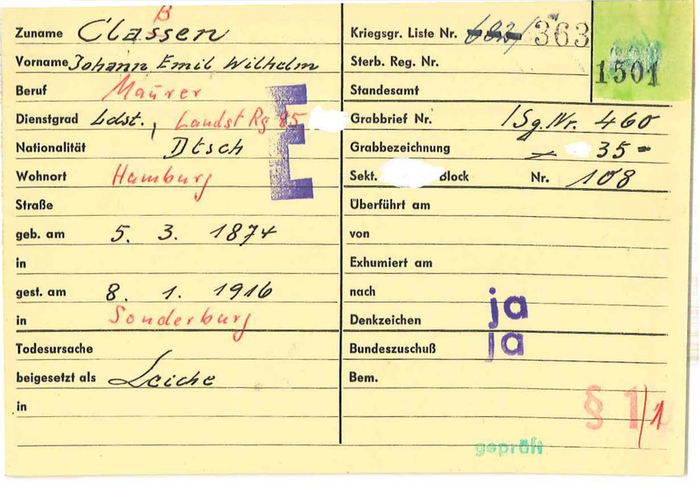 B
Zuname Classen
Vorname Johann Emil Wilhelm
Beruf Maurer
Dienstgrad Ldst., Landst Rg 85
Nationalität Dtsch
Wohnort Hamburg
Straße
geb. am 5. 3. 1874
in
gest. am 8. 1. 1916
in Sonderburg
Todesursache
beigesetzt als Leiche
in
E
E
Kriegsgr. Liste Nr. 363
1501
Sterb. Reg. Nr.
Standesamt
Grabbrief Nr. 1Sg.Nr. 460
Grabbezeichnung 35-
Sekt. Block Nr. 108
Überführt am
von
Exhumiert am
nach
Denkzeichen ja
Bundeszuschuß ja
Bem.
§ 1/1
geprüft